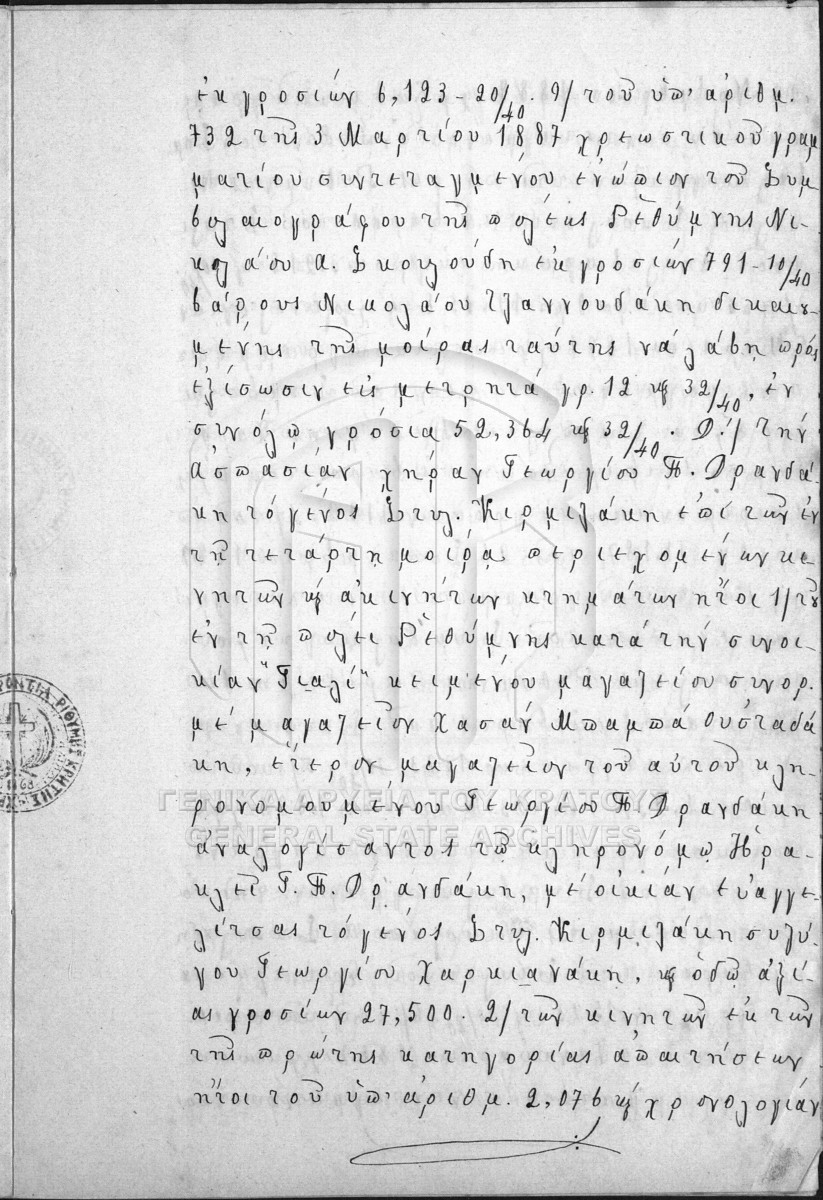 ἐκ γροσίων 6,123-20/40. 9/ τοῦ ὑπ' ἀριθμ.
732 τῆς 3 Μαρτίου 1887 χρεωστικοῦ γραμ
ματίου συντεταγμένου ἐνώπιον τοῦ Συμ
βολαιογράφου τῆς πόλεως Ρεθύμνης Νι-
κολάου Α. Σκουλούδη ἐκ γροσίων 791-10/40
βάρους Νικολάου Τζαννουδάκη δικαιου-
μένης τῆς μοίρας ταύτης νὰ λάβῃ πρὸς
ἐξίσωσιν εἰς μετρητὰ γρ. 12 καὶ 32/40, ἐν
συνόλῳ γρόσια 52,364 καὶ 32/40. Δ./ τὴν
Ἀσπασίαν χήραν Γεωργίου Π. Δρανδά-
κη τὸ γένος Στυλ. Κιρμιζάκη ἐπὶ τῶν ἐν
τῇ τετάρτῃ μοίρᾳ περιεχομένων κι-
νητῶν καὶ ἀκινήτων κτημάτων ἤτοι 1/ τοῦ
ἐν τῇ πόλει Ρεθύμνης κατὰ τὴν συνοι-
κίαν "Γιαλί" κειμένου μαγαζείου συνορ.
μὲ μαγαζεῖον Χασὰν Μπαμπᾶ Οὐσταδά
κη, ἕτερον μαγαζεῖον τοῦ αὐτοῦ κλη-
ρονομουμένου Γεωργίου Π. Δρανδάκη
ἀναλογίσαντος τῷ κληρονόμῳ Ἡρα-
κλεῖ Γ. Π. Δρανδάκη, μὲ οἰκίαν Εὐαγγε-
λίτσας τὸ γένος Στυλ. Κιρμιζάκη συζύ-
γου Γεωργίου Χαρκιανάκη, καὶ ὁδῷ ἀξί-
ας γροσίων 27,500. 2/ τῶν κινητῶν ἐκ τῶν
τῆς πρώτης κατηγορίας ἀπαιτήσεων
ἤτοι τοῦ ὑπ' ἀριθμ. 2,076 καὶ χρονολογίαν
ΓΕΝΙΚΑ ΑΡΧΕΙΑ ΤΟΥ ΚΡΑΤΟΥΣ
GENERAL STATE ARCHIVES